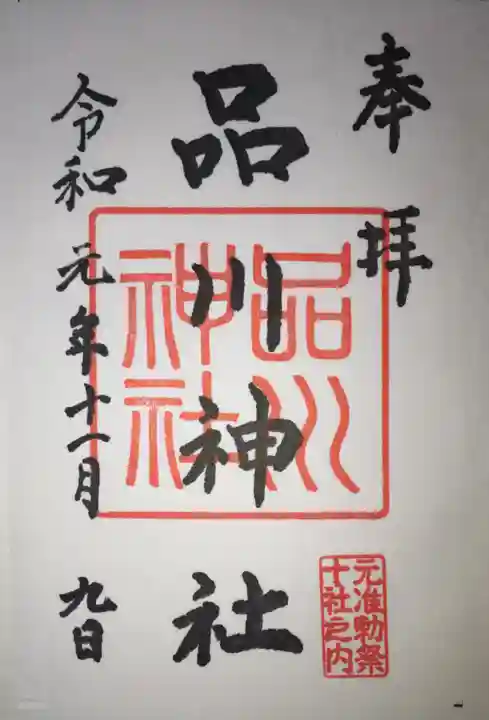 奉拝
品川神社
品川
神社
元准勅祭
十社之内
令和元年十一月九日